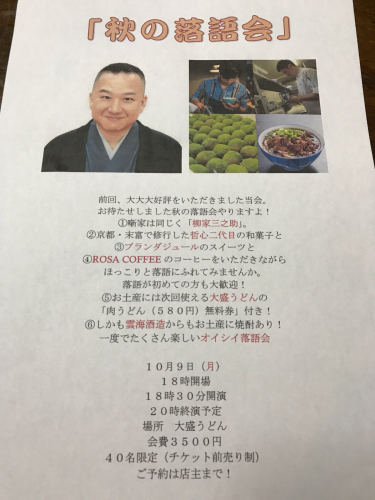 「秋の落語会」
前回、大大大好評をいただきました当会。
お待たせしました秋の落語会やりますよ！
①噺家は同じく「柳家三之助」。
②京都・末富で修行した哲心二代目の和菓子と
③ブランダジュールのスイーツと
④ROSA COFFEE のコーヒーをいただきながら
ほっこりと落語にふれてみませんか。
落語が初めての方も大歓迎！
⑤お土産には次回使える大盛うどんの
「肉うどん（５８０円）無料券」付き！
⑥しかも雲海酒造からもお土産に焼酎あり！
一度でたくさん楽しいオイシイ落語会
１０月９日（月）
１８時開場
１８時３０分開演
２０時終演予定
場所　大盛うどん
会費３５００円
４０名限定（チケット前売り制）
ご予約は店主まで！